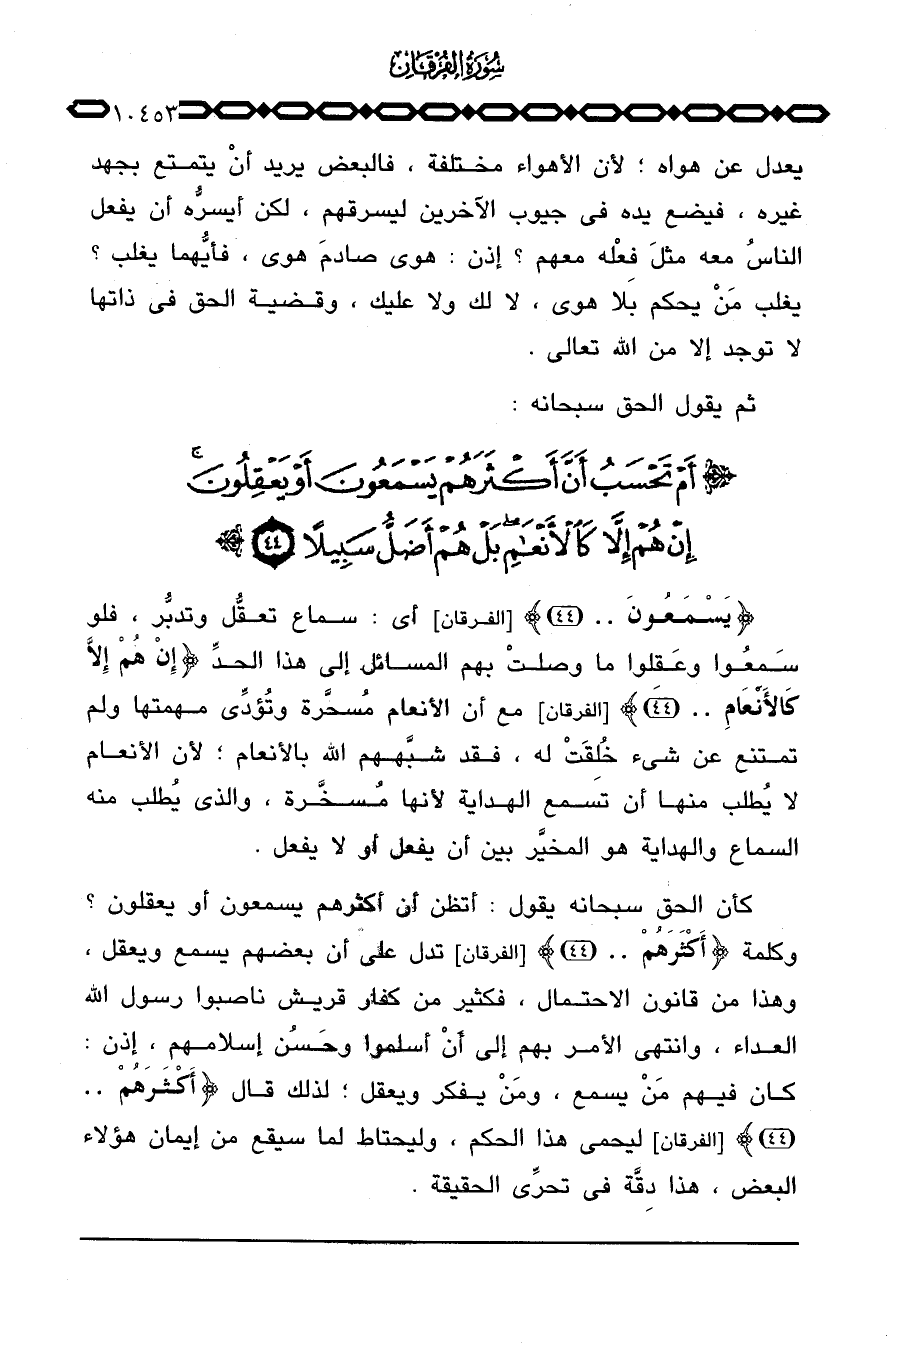 سُورَةُ الفُرْقَانِ
١٠٤٥٣
يعدل عن هواه ؛ لأن الأهواء مختلفة ، فالبعض يريد أنْ يتمتع بجهد
غيره ، فيضع يده فى جيوب الآخرين ليسرقهم ، لكن أيسرُّه أن يفعل
الناسُ معه مثلَ فعْله معهم ؟ إذن : هوى صادمَ هوى ، فأيُّهما يغلب ؟
يغلب مَنْ يحكم بلا هوى ، لا لك ولا عليك ، وقضية الحق فى ذاتها
لا توجد إلا من الله تعالى .
ثم يقول الحق سبحانه :
﴿ أَمْ تَحْسَبُ أَنَّ أَكْثَرَهُمْ يَسْمَعُونَ أَوْ يَعْقِلُونَ ۚ
إِنْ هُمْ إِلَّا كَالْأَنْعَٰمِ ۖ بَلْ هُمْ أَضَلُّ سَبِيلًا ٤٤ ﴾
﴿ يَسْمَعُونَ .. (٤٤) ﴾ [الفرقان] أى : سماع تعقُّل وتدبُّر ، فلو
سَمعُوا وعَقلوا ما وصلتْ بهم المسائل إلى هذا الحدِّ ﴿ إِنْ هُمْ إِلاَّ
كَالأَنْعَامِ .. (٤٤) ﴾ [الفرقان] مع أن الأنعام مُسخَّرة وتُؤدِّى مهمتها ولم
تمتنع عن شىء خُلقَتْ له ، فقد شبَّههم الله بالأنعام ؛ لأن الأنعام
لا يُطلب منها أن تسمع الهداية لأنها مُسخَّرة ، والذى يُطلب منه
السماع والهداية هو المخيَّر بين أن يفعل أو لا يفعل .
كأن الحق سبحانه يقول : أتظن أن أكثرهم يسمعون أو يعقلون ؟
وكلمة ﴿ أَكْثَرَهُمْ .. (٤٤) ﴾ [الفرقان] تدل على أن بعضهم يسمع ويعقل ،
وهذا من قانون الاحتمال ، فكثير من كفار قريش ناصبوا رسول الله
العداء ، وانتهى الأمر بهم إلى أنْ أسلموا وحَسُن إسلامهم ، إذن :
كان فيهم مَنْ يسمع ، ومَنْ يفكر ويعقل ؛ لذلك قال ﴿ أَكْثَرَهُمْ ..
(٤٤) ﴾ [الفرقان] ليحمى هذا الحكم ، وليحتاط لما سيقع من إيمان هؤلاء
البعض ، هذا دقَّة فى تحرِّى الحقيقة .